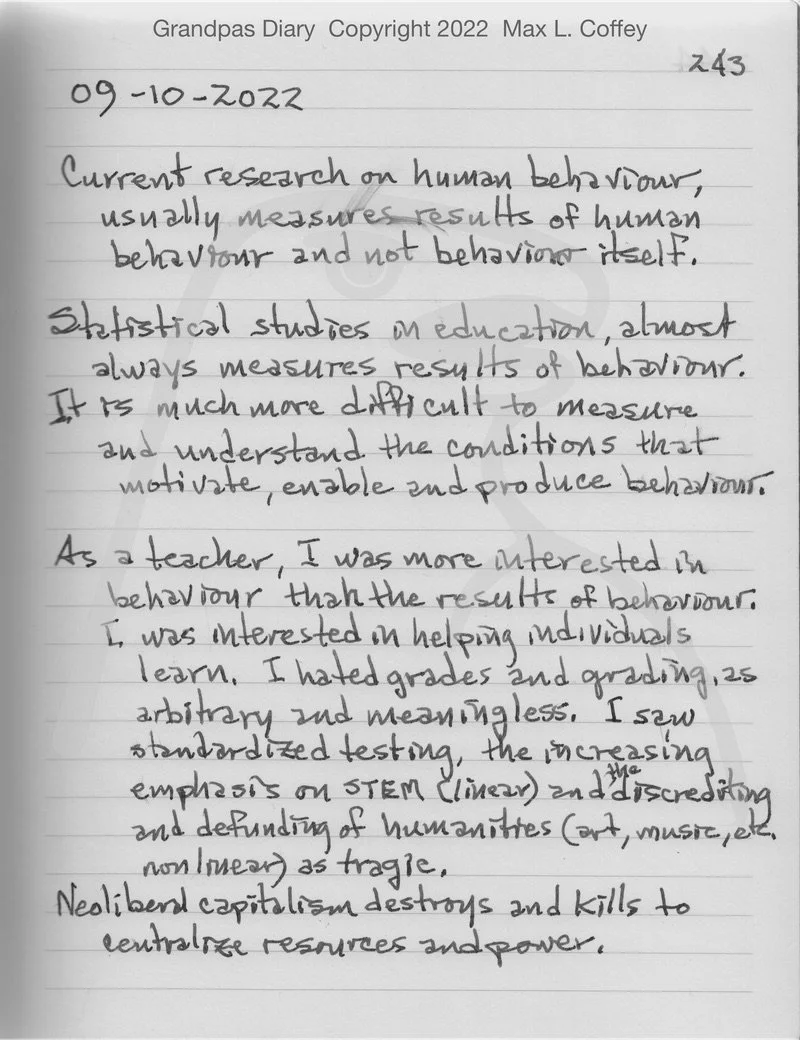 Grandpas Diary Copyright 2022 Max L. Coffey
243
09-10-2022
Current research on human behaviour,
usually measures results of human
behaviour and not behaviour itself.
Statistical studies in education, almost
always measures results of behaviour.
It is much more difficult to measure
and understand the conditions that
motivate, enable and produce behaviour.
As a teacher, I was more interested in
behaviour than the results of behaviour.
I was interested in helping individuals
learn. I hated grades and grading, as
arbitrary and meaningless. I saw
standardized testing, the increasing
emphasis on STEM (linear) and the discrediting
and defunding of humanities (art, music, etc.
nonlinear) as tragic.
Neoliberal capitalism destroys and kills to
centralize resources and power.